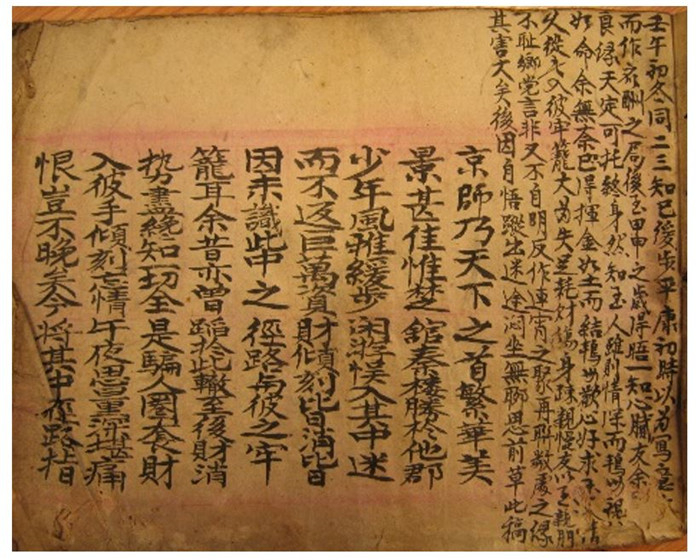 壬午初冬同二三知己緩步平康初時以為寓意
而作應酬之局後至甲申之歲得晤一知心膩友余
良緣天定可托終身然知玉人雖則情深而鴇以視
如命余無奈已得揮金如土而結鴇母歡心好求
久從之入彼牢籠大為失足耗財傷身疎親慢友以至親朋
不恥鄉党言非又不自明反作連宵之聚再聯散處之緣
其害大矣後因自悟蹤出迷途悶坐無聊思前草此稿
京師乃天下之首繁華美
景甚佳惟楚舘秦樓勝於他郡
少年風雅緩步闲游悞入其中迷
而不返巨萬資財傾刻皆消皆
因未識此中之徑路與彼之牢
籠耳余昔亦曾蹈於此轍至後財消
势盡纔知一切全是騙人圈套財
入彼手傾刻忘情午夜思量深堪痛
恨豈不晚矣今將其中徑路指